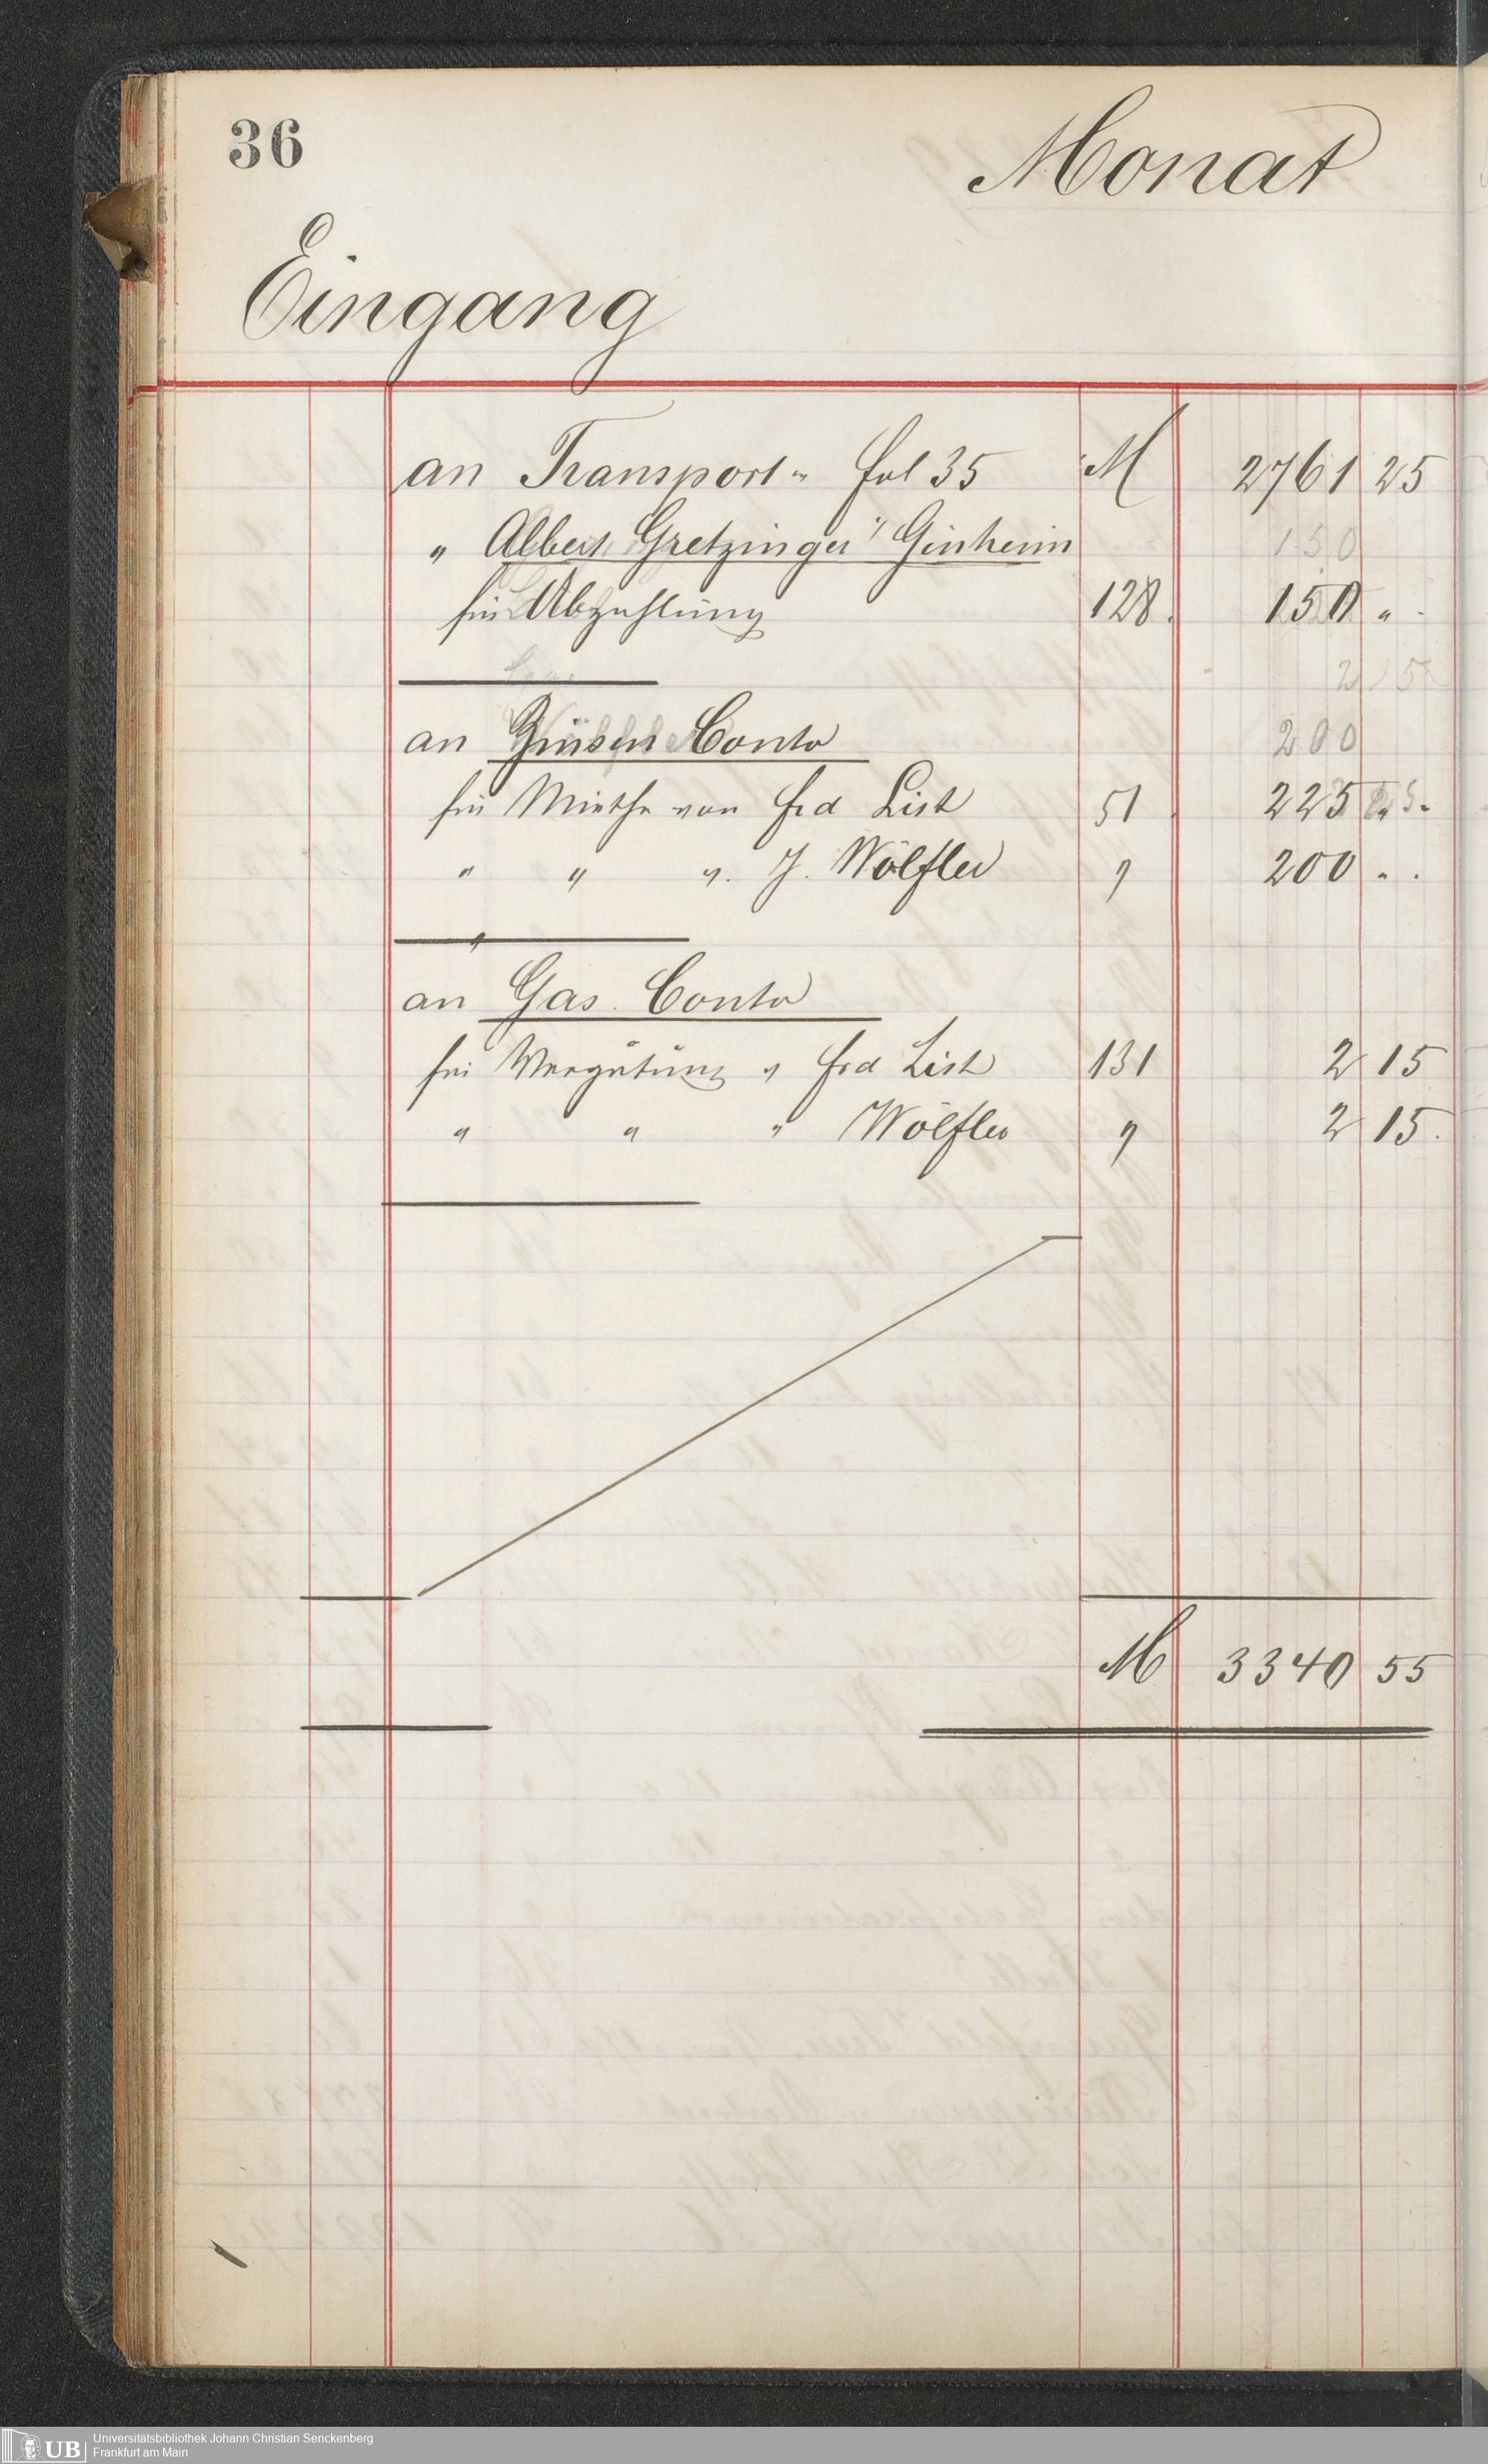 36
Monat
Eingang
an Transport " fol 35 M 2761 25
" Albert Gretzinger, Ginheim 150
für Abzahlung 128. 150 " .
2 15
an Zinsen Conto 200
für Miethe von Frd List 51 225 " .
" " v. J. Wölfler " 200 " .
an Gas. Conto
für Vergütung v Frd List 131 2 15
" " " Wölfler " 2 15.
M 3340 55
UB
Universitätsbibliothek Johann Christian Senckenberg
Frankfurt am Main